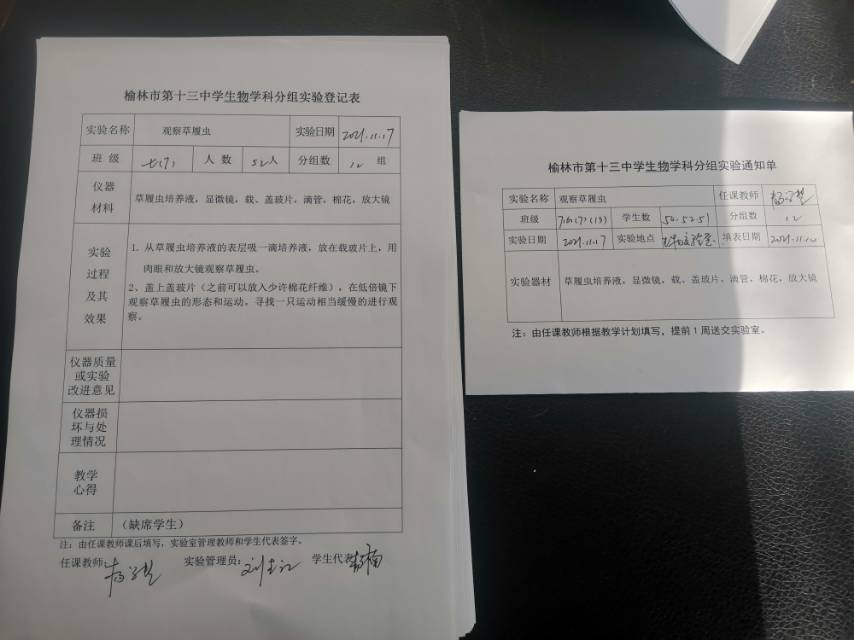 榆林市第十三中学生物学科分组实验登记表
实验名称 观察草履虫 实验日期 2021.11.17
班 级 七(7) 人 数 52人 分组数 12 组
仪器
材料
草履虫培养液，显微镜，载、盖玻片，滴管，棉花，放大镜
实验
过程
及其
效果
1. 从草履虫培养液的表层吸一滴培养液，放在载玻片上，用
肉眼和放大镜观察草履虫。
2、盖上盖玻片（之前可以放入少许棉花纤维），在低倍镜下
观察草履虫的形态和运动。寻找一只运动相当缓慢的进行观
察。
仪器质量
或实验
改进意见
仪器损
坏与处
理情况
教学
心得
备注 （缺席学生）
注：由任课教师课后填写，实验室管理教师和学生代表签字。
任课教师: 实验管理员: 学生代表:
榆林市第十三中学生物学科分组实验通知单
实验名称 观察草履虫 任课教师
班级 学生数 52.52.51 分组数 12
实验日期 2021.11.17 实验地点 生物实验室 填表日期 2021.11.10
实验器材 草履虫培养液，显微镜，载、盖玻片，滴管，棉花，放大镜
注：由任课教师根据教学计划填写，提前 1 周送交实验室。